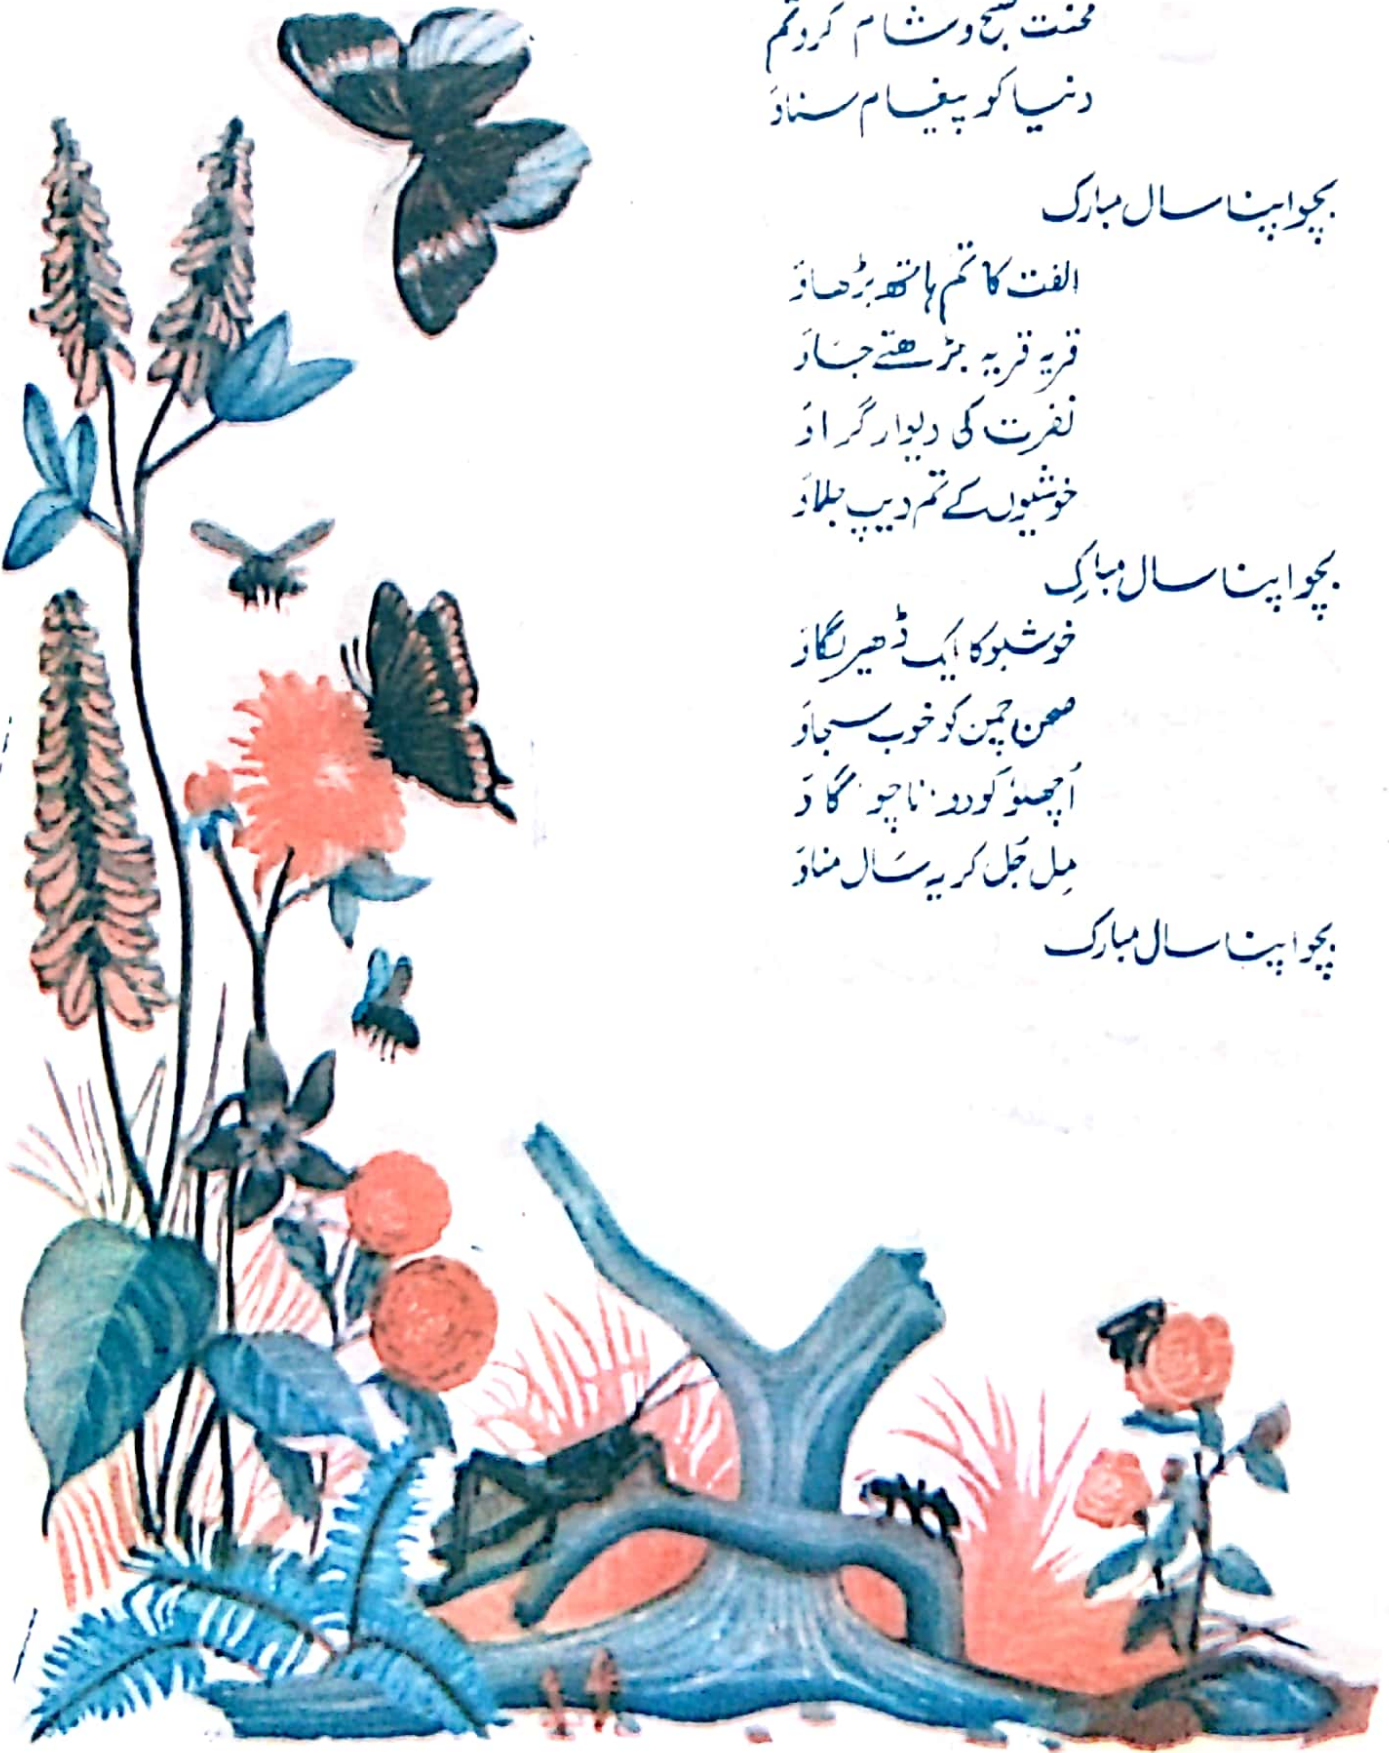 محنت صبح و شام کرو تم
دنیا کو پیغام سناؤ
بچو اپنا سال مبارک
الفت کا تم ہاتھ بڑھاؤ
قریہ قریہ بڑھتے جاؤ
نفرت کی دیوار گراؤ
خوشیوں کے تم دیپ جلاؤ
بچو اپنا سال مبارک
خوشبو کا ایک ڈھیر لگاؤ
صحن چمن کو خوب سجاؤ
اُچھلو کودو ناچو گاؤ
مِل جُل کر یہ سال مناؤ
بچو اپنا سال مبارک